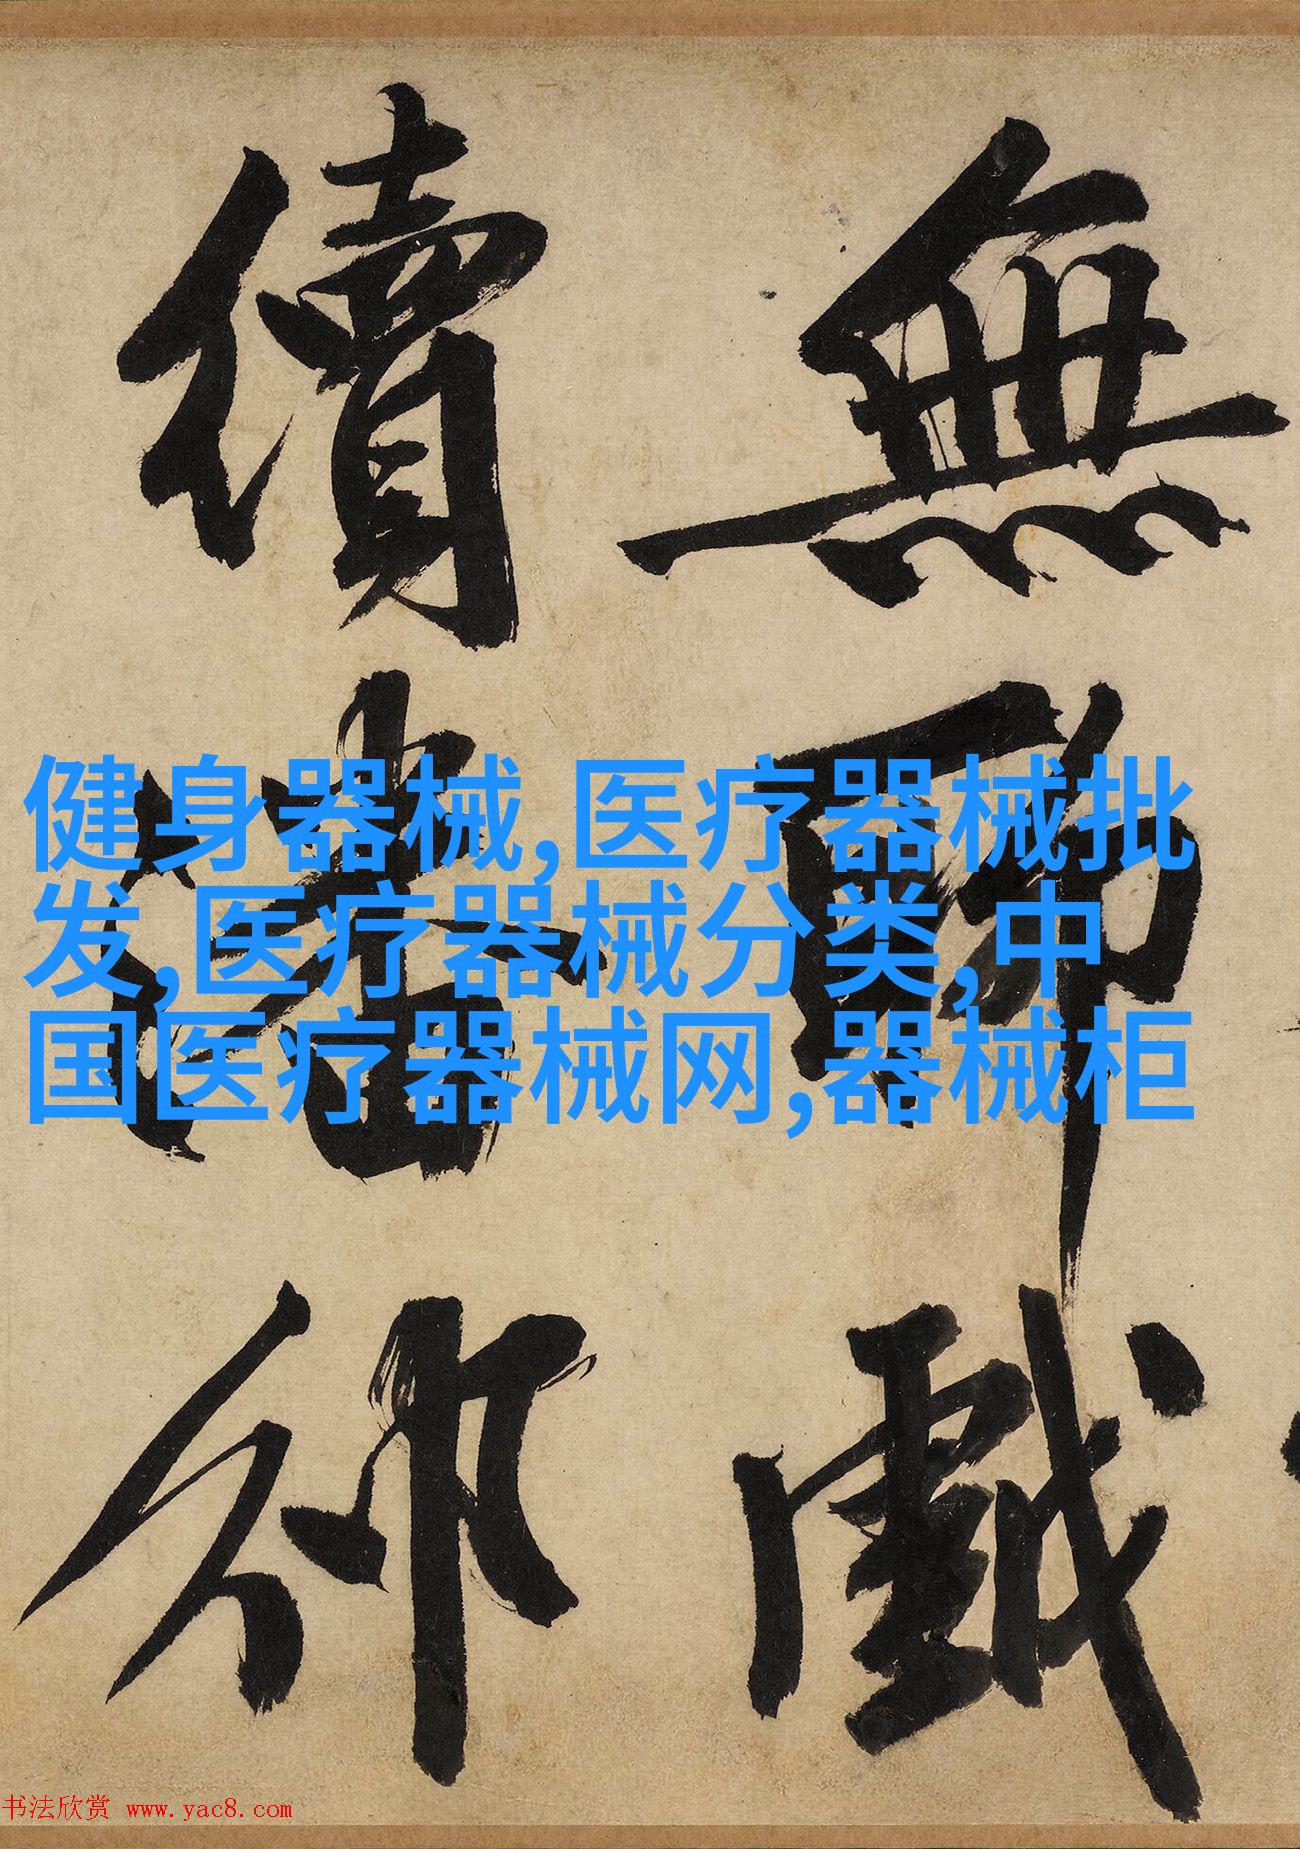 無聊戲
續潘邠
健身器械,医疗器械批
发,医疗器械分类,中
国医疗器械网,器械柜
书法欣赏 www.yac8.com